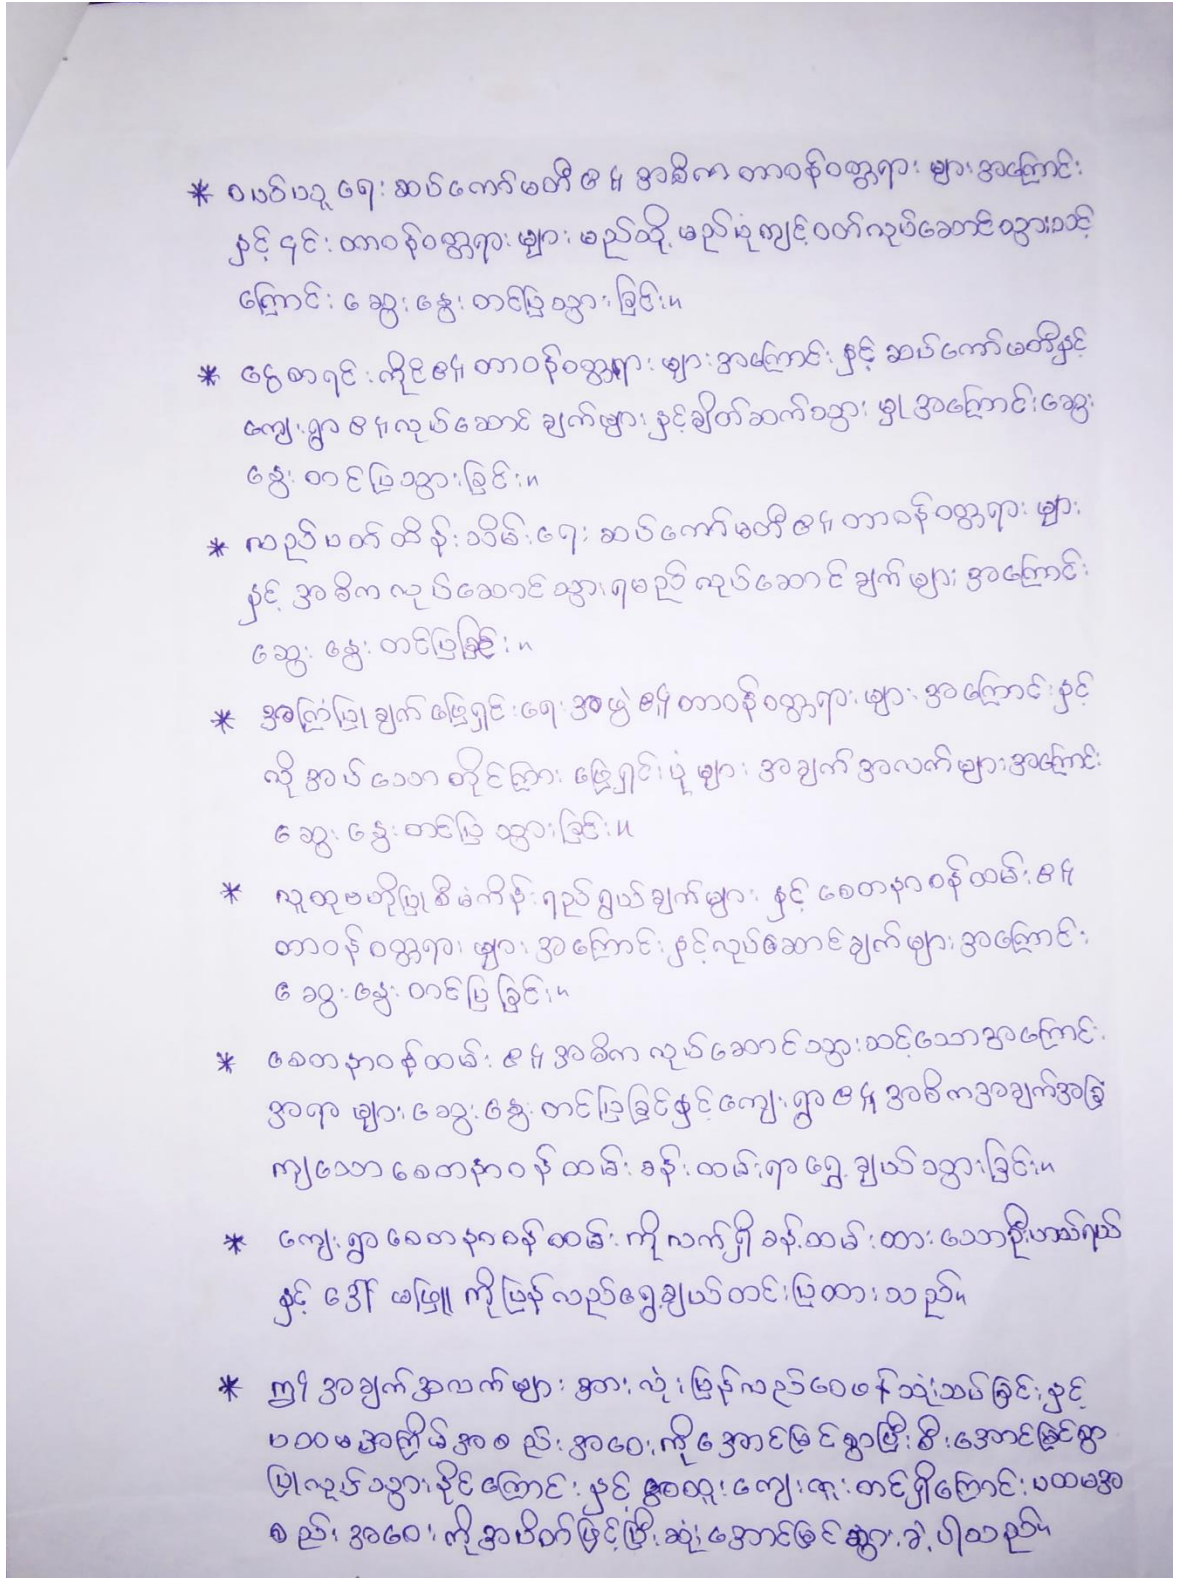 * စပစ်ပဥ္ ရေး ဆပ်ကော်မတီ ၏ အဓိက တာဝန်ဝတ္တရား များ အကြောင်း
နှင့် ၎င်း တာဝန်ဝတ္တရား များ မည်သို့ မည်ပုံကျင့်ဝတ်လုပ်ဆောင်သွားသင့်
ကြောင်း ဆွေး နွေး တင်ပြ သွား ခြင်း။
* ငွေစာရင်း ကိုင်၏ တာဝန်ဝတ္တရား များ အကြောင်း နှင့် ဆပ်ကော်မတီနှင့်
ကျေးရွာ ၏ လုပ်ဆောင် ချက်များ နှင့်ချိတ်ဆက်သွား မှု အကြောင်း ဆွေး
နွေး တင်ပြ သွား ခြင်း။
* လည်ပတ် ထိန်းသိမ်း ရေး ဆပ်ကော်မတီ၏ တာဝန်ဝတ္တရား များ
နှင့် အဓိက လုပ်ဆောင် သွားရမည် လုပ်ဆောင် ချက်များ အကြောင်း
ဆွေး နွေး တင်ပြခြင်း။
* အကြံပြု ချက် ဖြေရှင်း ရေး အဖွဲ့ ၏ တာဝန်ဝတ္တရား များ အကြောင်း နှင့်
လို အပ် သော တိုင်ကြား ဖြေရှင်း ပုံ များ အချက် အလက်များ အကြောင်း
ဆွေး နွေး တင်ပြ သွား ခြင်း။
* လူထုဗဟိုပြု စီမံကိန်း ရည်ရွယ်ချက်များ နှင့် စေတနာ့ဝန်ထမ်း ၏
တာဝန်ဝတ္တရား များ အကြောင်း နှင့်လုပ်ဆောင်ချက်များ အကြောင်း
ဆွေး နွေး တင်ပြ ခြင်း။
* စေတနာဝန်ထမ်း ၏ အဓိက လုပ်ဆောင်သွားသင့်သော အကြောင်း
အရာ များ ဆွေး နွေး တင်ပြခြင်နှင့်ကျေးရွာ ၏ အဓိကအချက်အခြ
ကျသော စေတနာဝန်ထမ်း ခန်းထမ်းရာ ရွေ့ ချယ် သွားခြင်း။
* ကျေးရွာ စေတနာဝန်ထမ်း ကို လက်ရှိ ခန့်ထမ်း ထား သော ဦးဟာသ်ရယ်
နှင့် ဒေါ် မဖြူ ကို ပြန် လည် ရွေ့ချယ် တင်းပြ ထား သည်။
* ဤ အချက်အလက်များ အား လုံး ပြန်လည် ဝေဖန် သုံးသပ် ခြင်း နှင့်
ပထမ အကြိမ် အစည်း အဝေး ကို အောင်မြင်စွာ ပြီးစီး အောင်မြင်စွာ
ပြုလုပ် သွား နိုင် ကြောင်း နှင့် အထူး ကျေးဇူး တင်ရှိကြောင်း ပထမအ
စည်း အဝေး ကို အပိတ် ဖြင့်ပြီး ဆုံး အောင်မြင် သွား ခဲ့ ပါသည်။